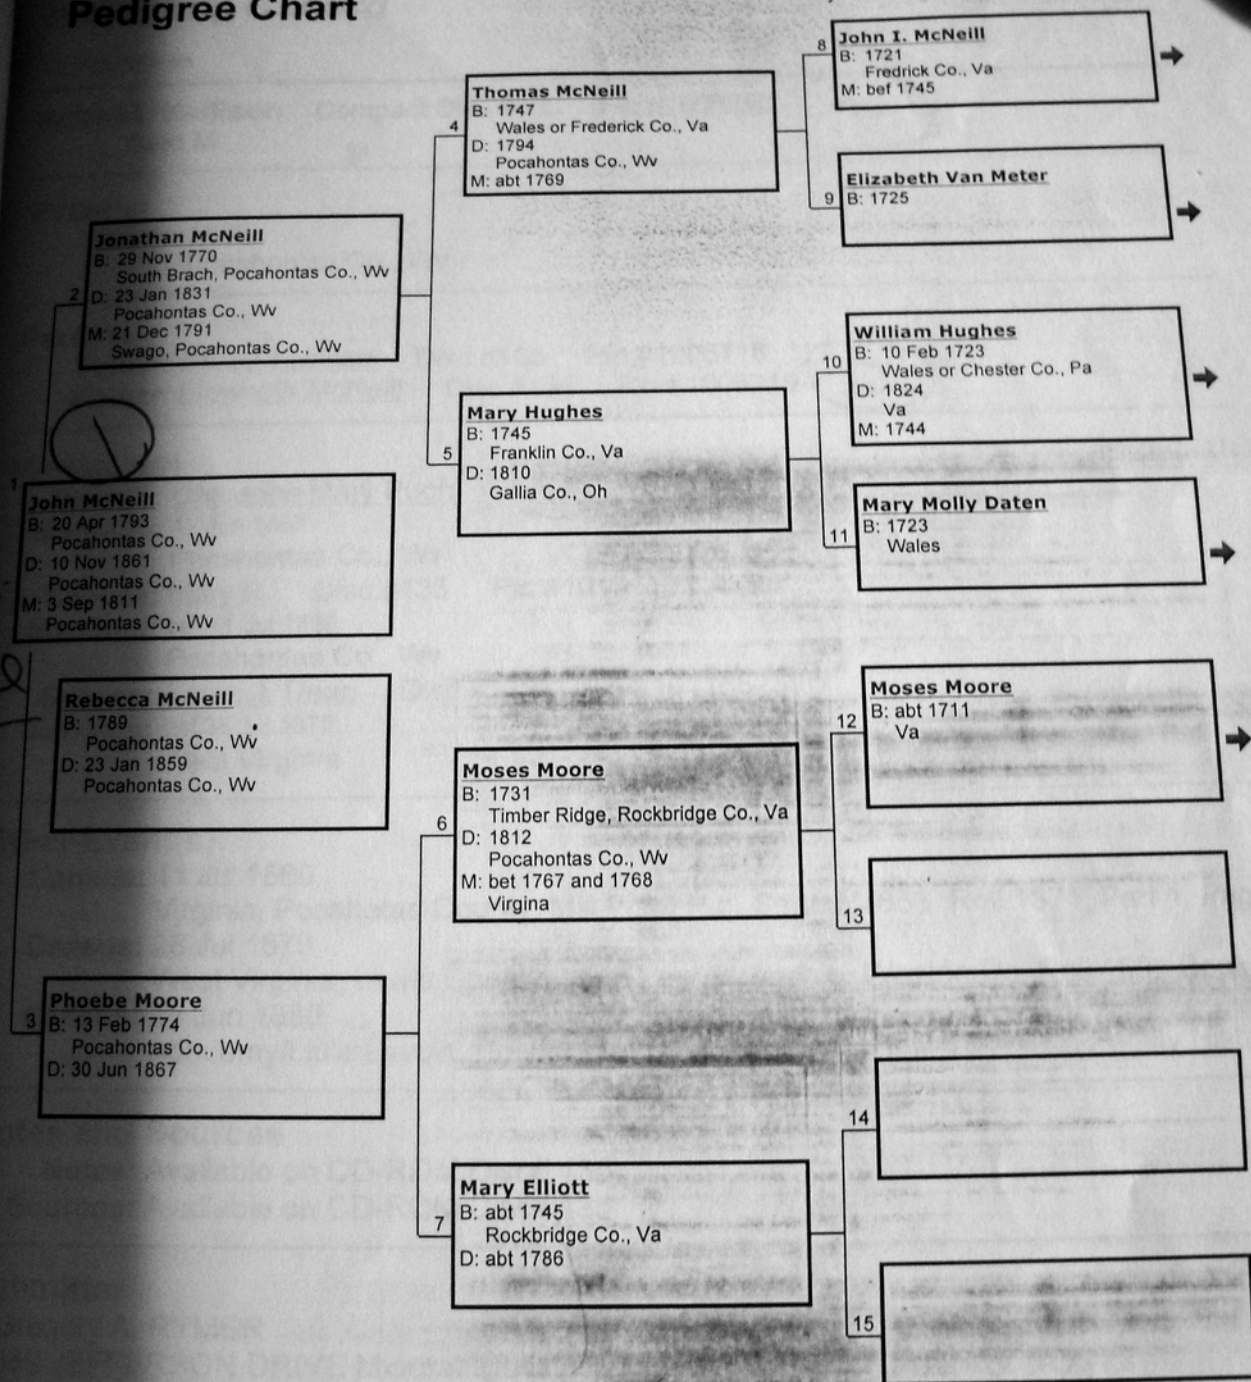 Pedigree Chart
1
John McNeill
B: 20 Apr 1793
Pocahontas Co., Wv
D: 10 Nov 1861
Pocahontas Co., Wv
M: 3 Sep 1811
Pocahontas Co., Wv
Rebecca McNeill
B: 1789
Pocahontas Co., Wv
D: 23 Jan 1859
Pocahontas Co., Wv
2
Jonathan McNeill
B: 29 Nov 1770
South Brach, Pocahontas Co., Wv
D: 23 Jan 1831
Pocahontas Co., Wv
M: 21 Dec 1791
Swago, Pocahontas Co., Wv
3
Phoebe Moore
B: 13 Feb 1774
Pocahontas Co., Wv
D: 30 Jun 1867
4
Thomas McNeill
B: 1747
Wales or Frederick Co., Va
D: 1794
Pocahontas Co., Wv
M: abt 1769
5
Mary Hughes
B: 1745
Franklin Co., Va
D: 1810
Gallia Co., Oh
6
Moses Moore
B: 1731
Timber Ridge, Rockbridge Co., Va
D: 1812
Pocahontas Co., Wv
M: bet 1767 and 1768
Virgina
7
Mary Elliott
B: abt 1745
Rockbridge Co., Va
D: abt 1786
8
John I. McNeill
B: 1721
Fredrick Co., Va
M: bef 1745
9
Elizabeth Van Meter
B: 1725
10
William Hughes
B: 10 Feb 1723
Wales or Chester Co., Pa
D: 1824
Va
M: 1744
11
Mary Molly Daten
B: 1723
Wales
12
Moses Moore
B: abt 1711
Va
13
14
15